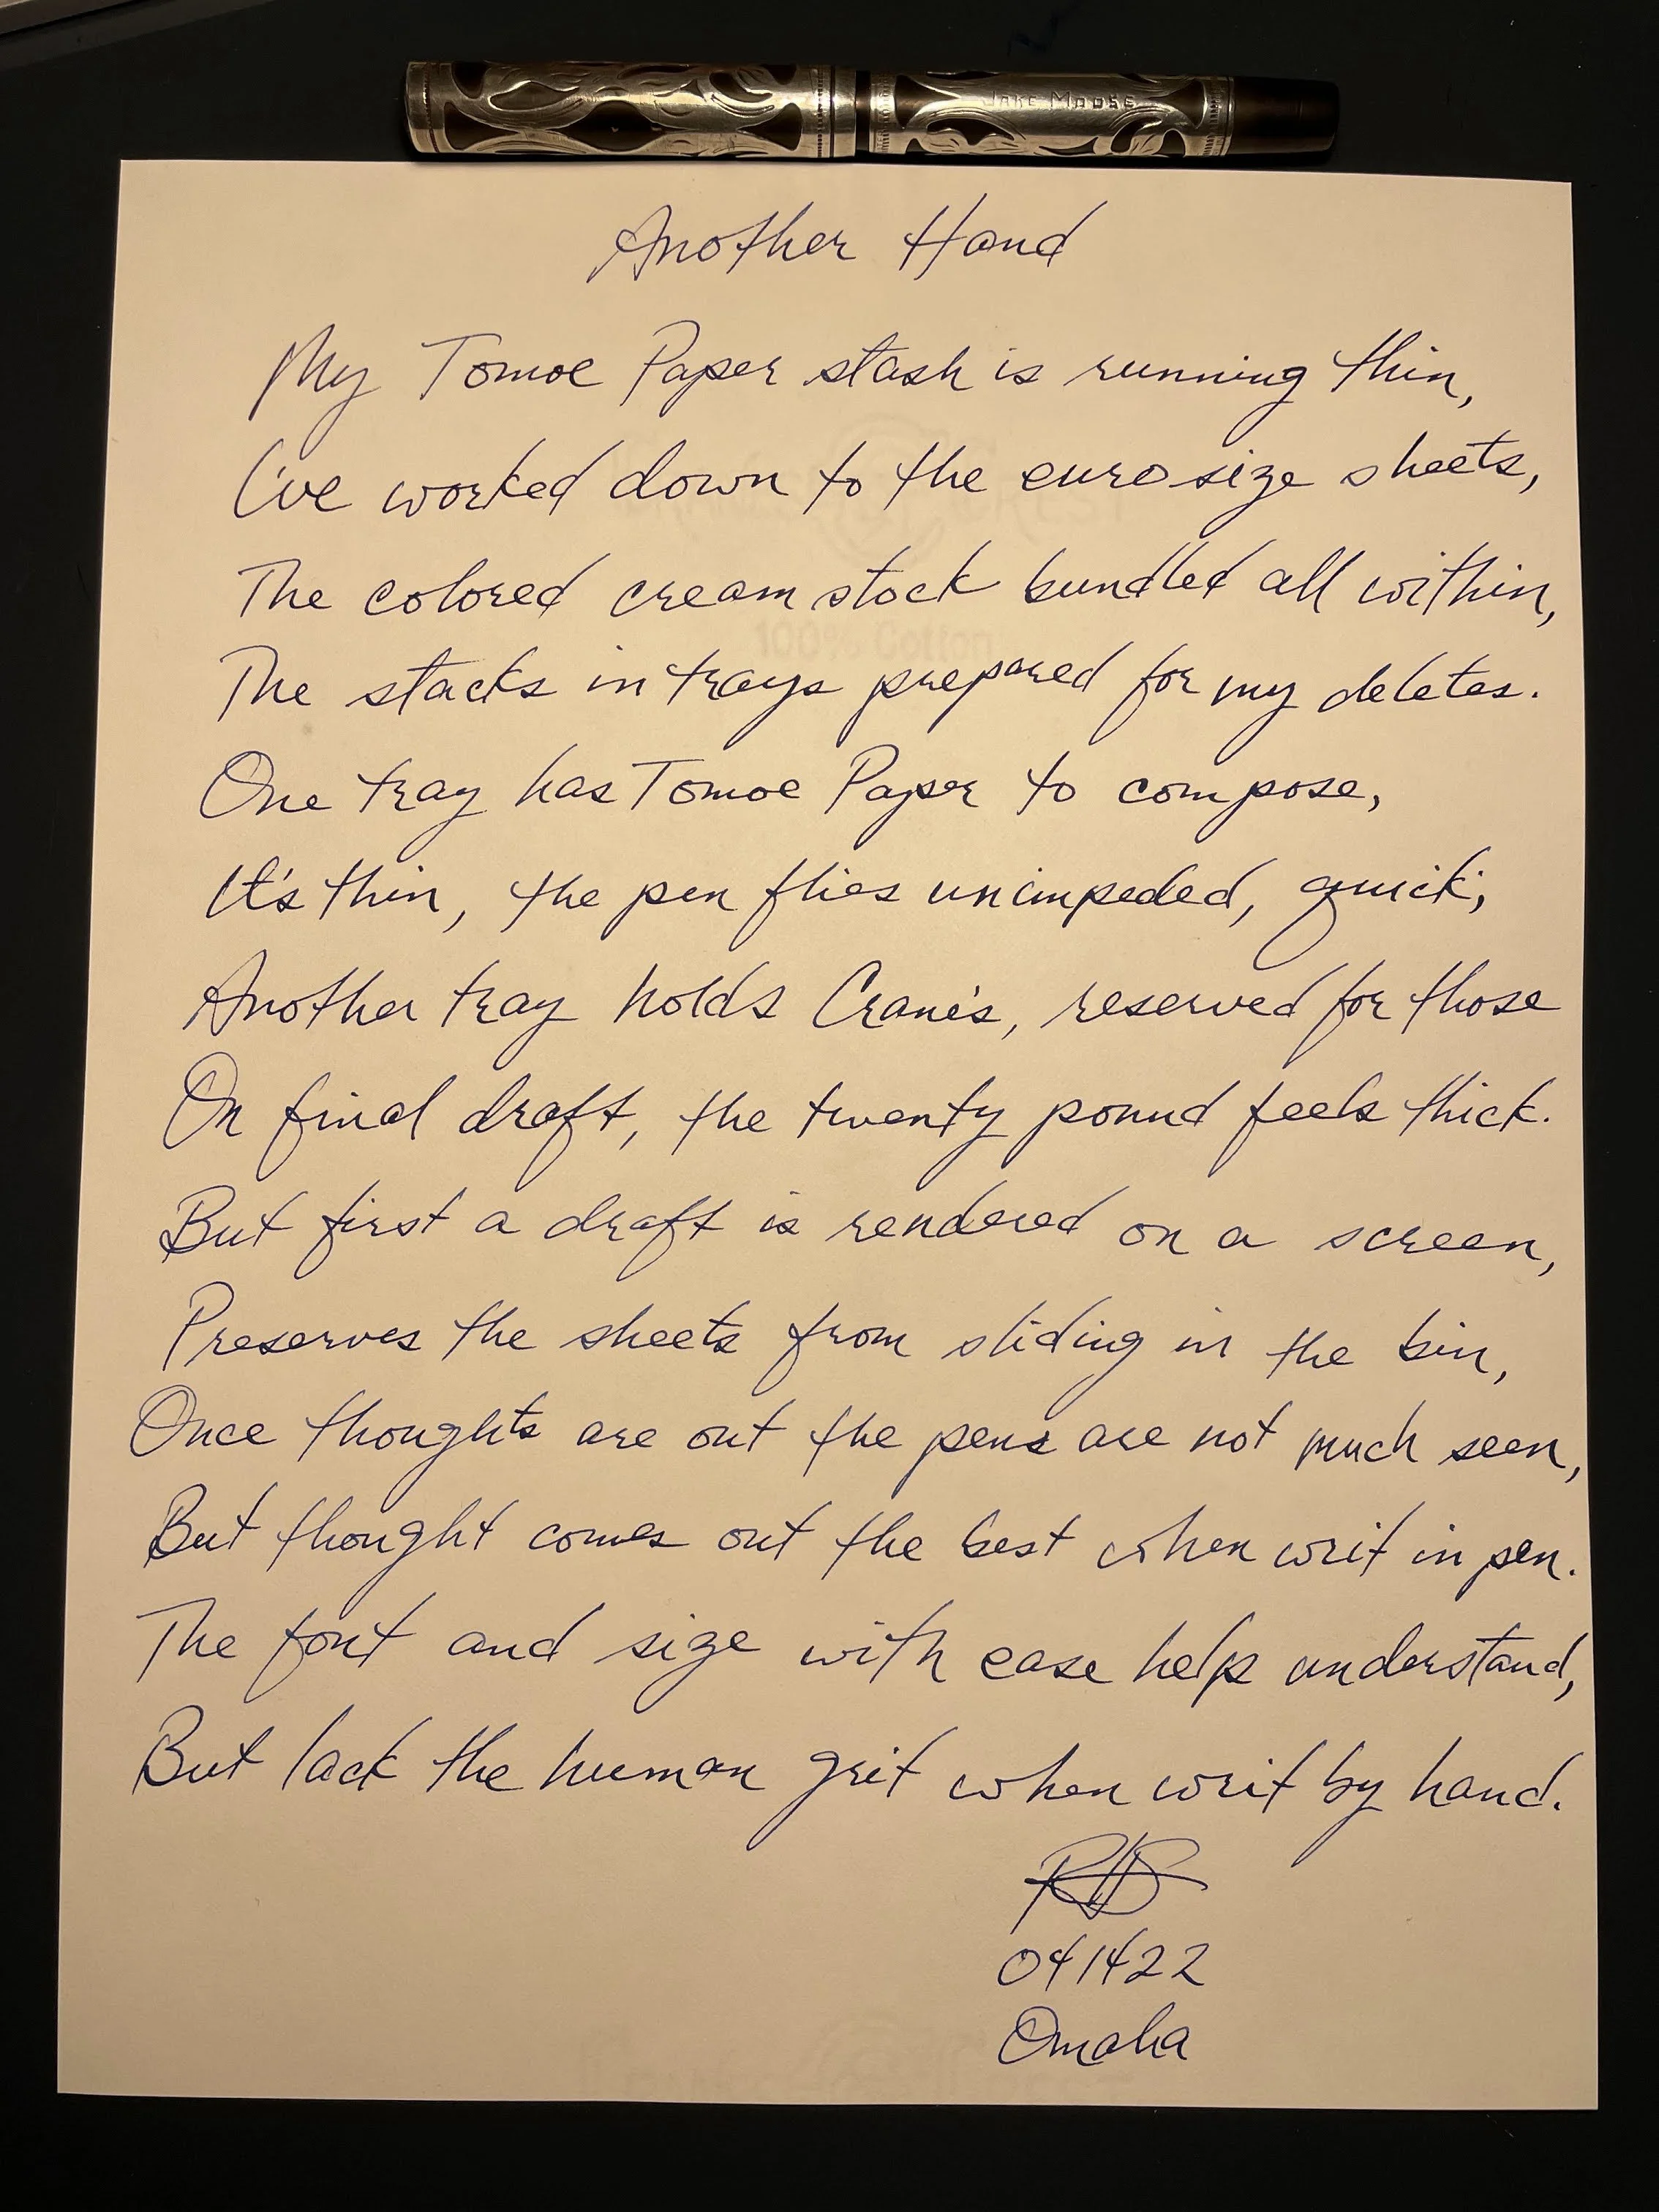 Jake Moose
Another Hand
My Tomoe Paper stash is running thin,
I've worked down to the euro size sheets,
The colored cream stock bundled all within,
The stacks in trays prepared for my deletes.
One tray has Tomoe Paper to compose,
It's thin, the pen flies unimpeded, quick;
Another tray holds Crane's, reserved for those
On final draft, the twenty pound feels thick.
But first a draft is rendered on a screen,
Preserves the sheets from sliding in the bin,
Once thoughts are out the pens are not much seen,
But thought comes out the best when writ in pen.
The font and size with ease help understand,
But lack the human grit when writ by hand.
041422
Omaha
100% Cotton